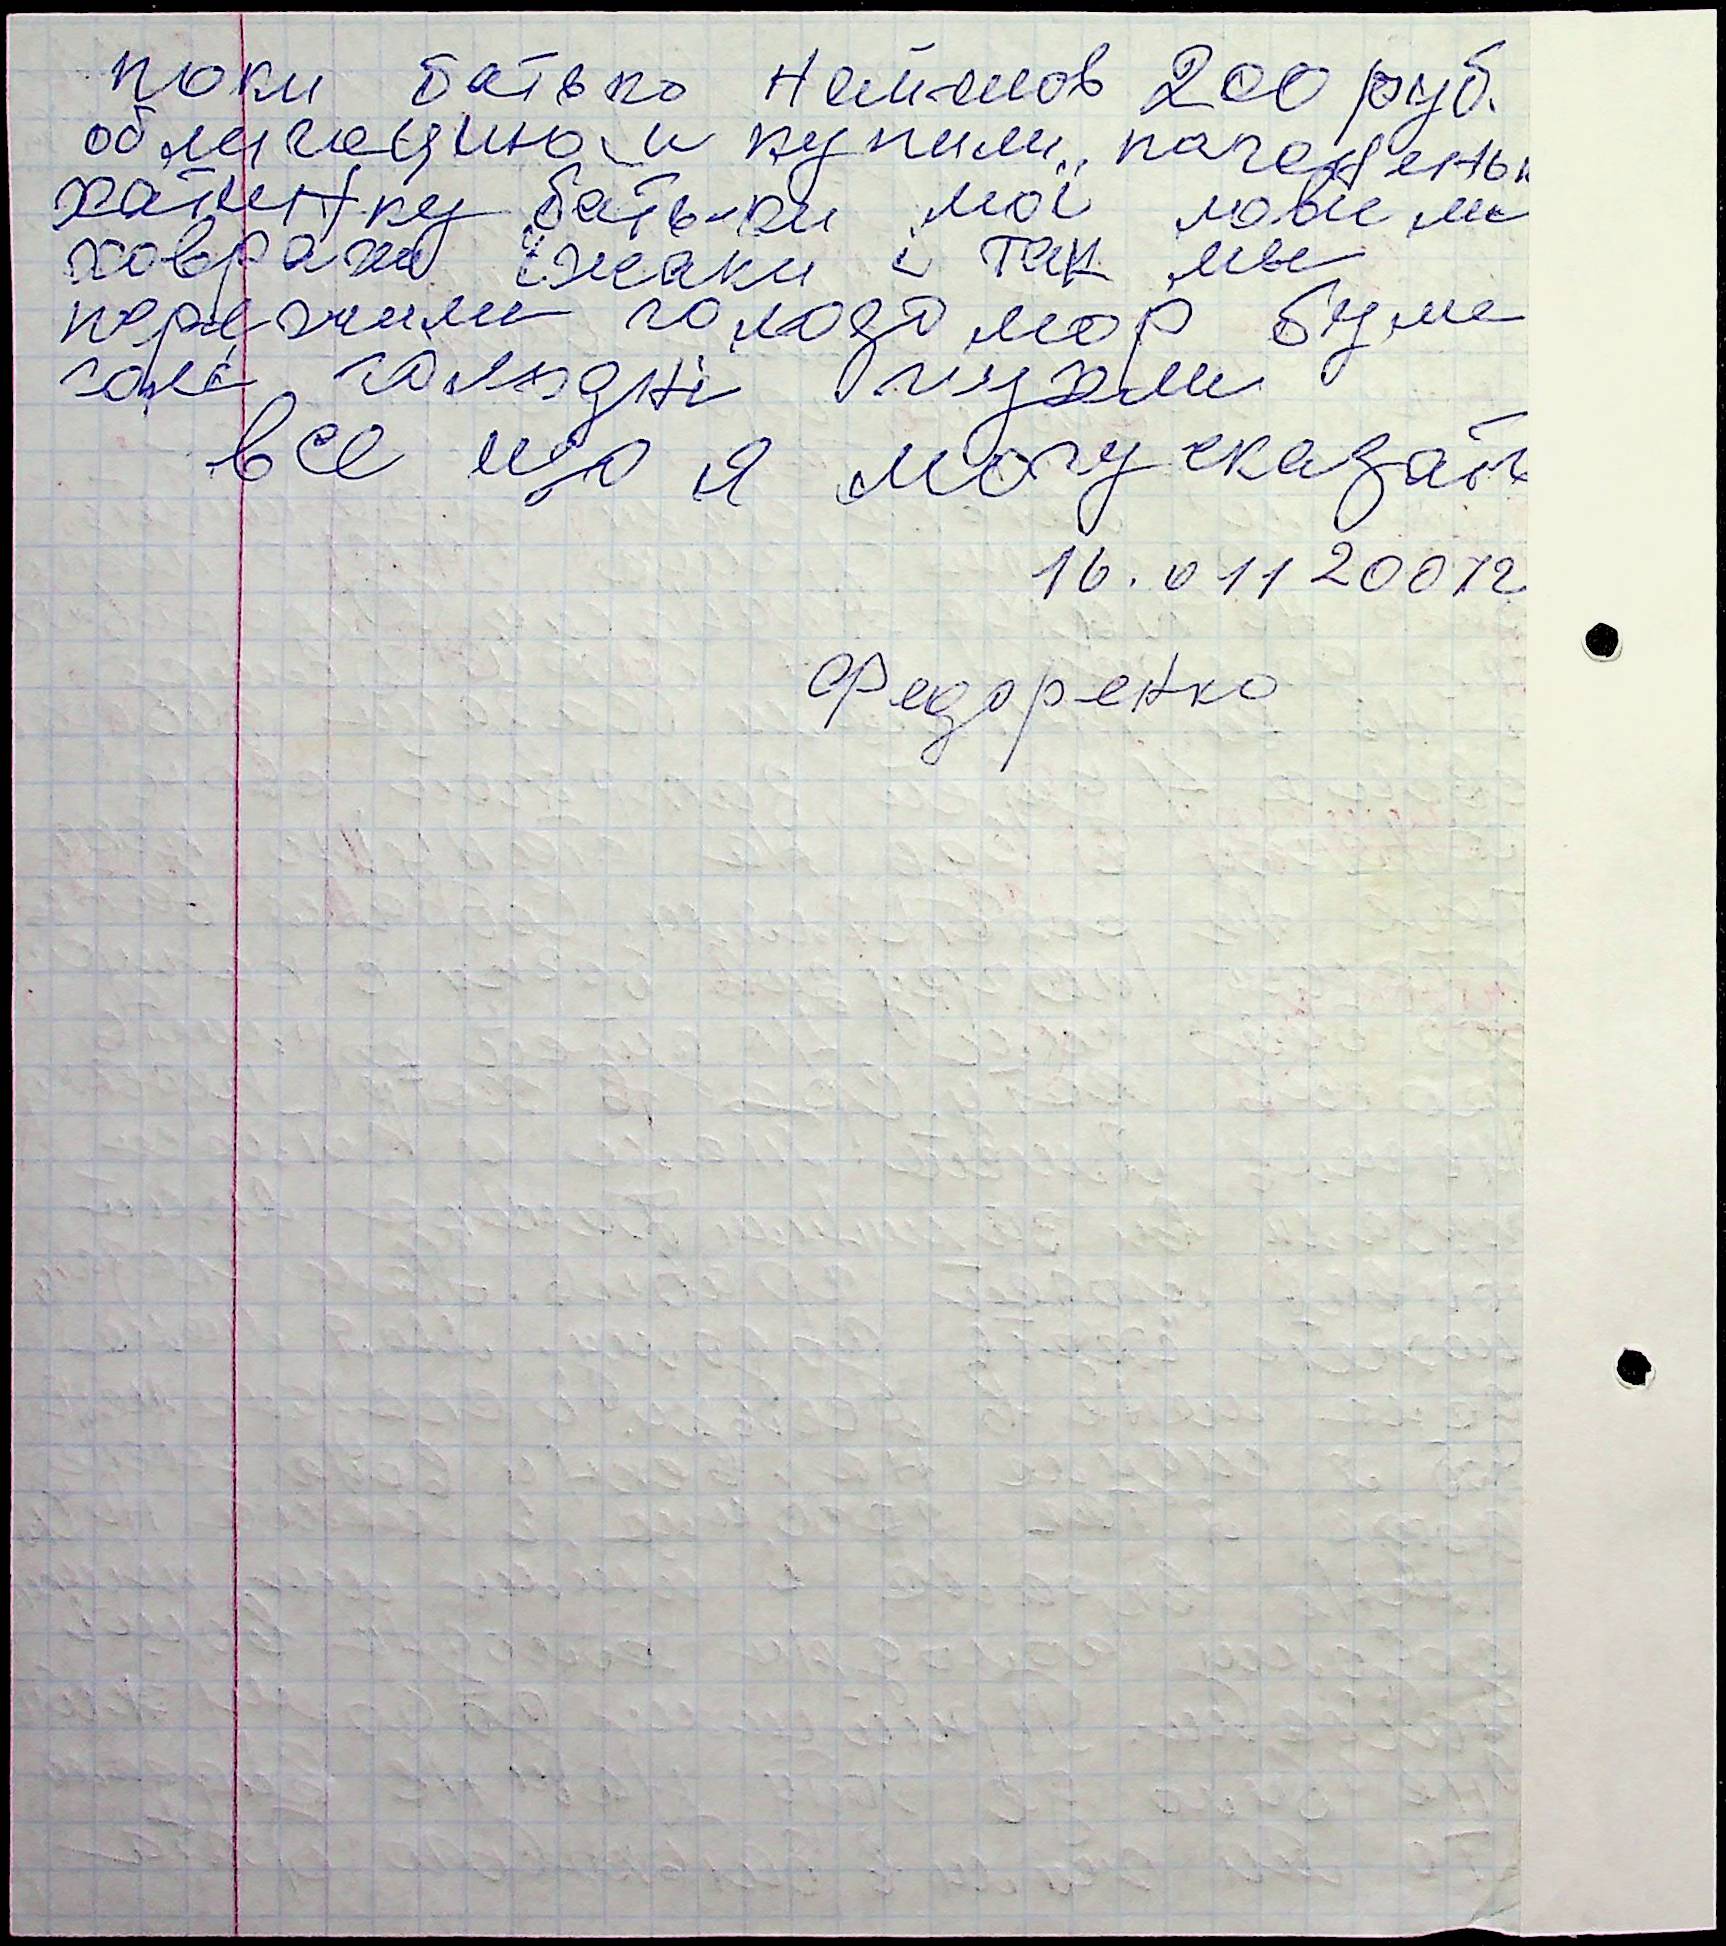 поки батько найшов 200 руб.
облигацию и купили погоненьк
хатинку батьки мої ловили
ховрахи їжаки і так мы
пережили голодомор були
голі голодні пухли
все що я могу сказать
16.011 2007г
Федоренко